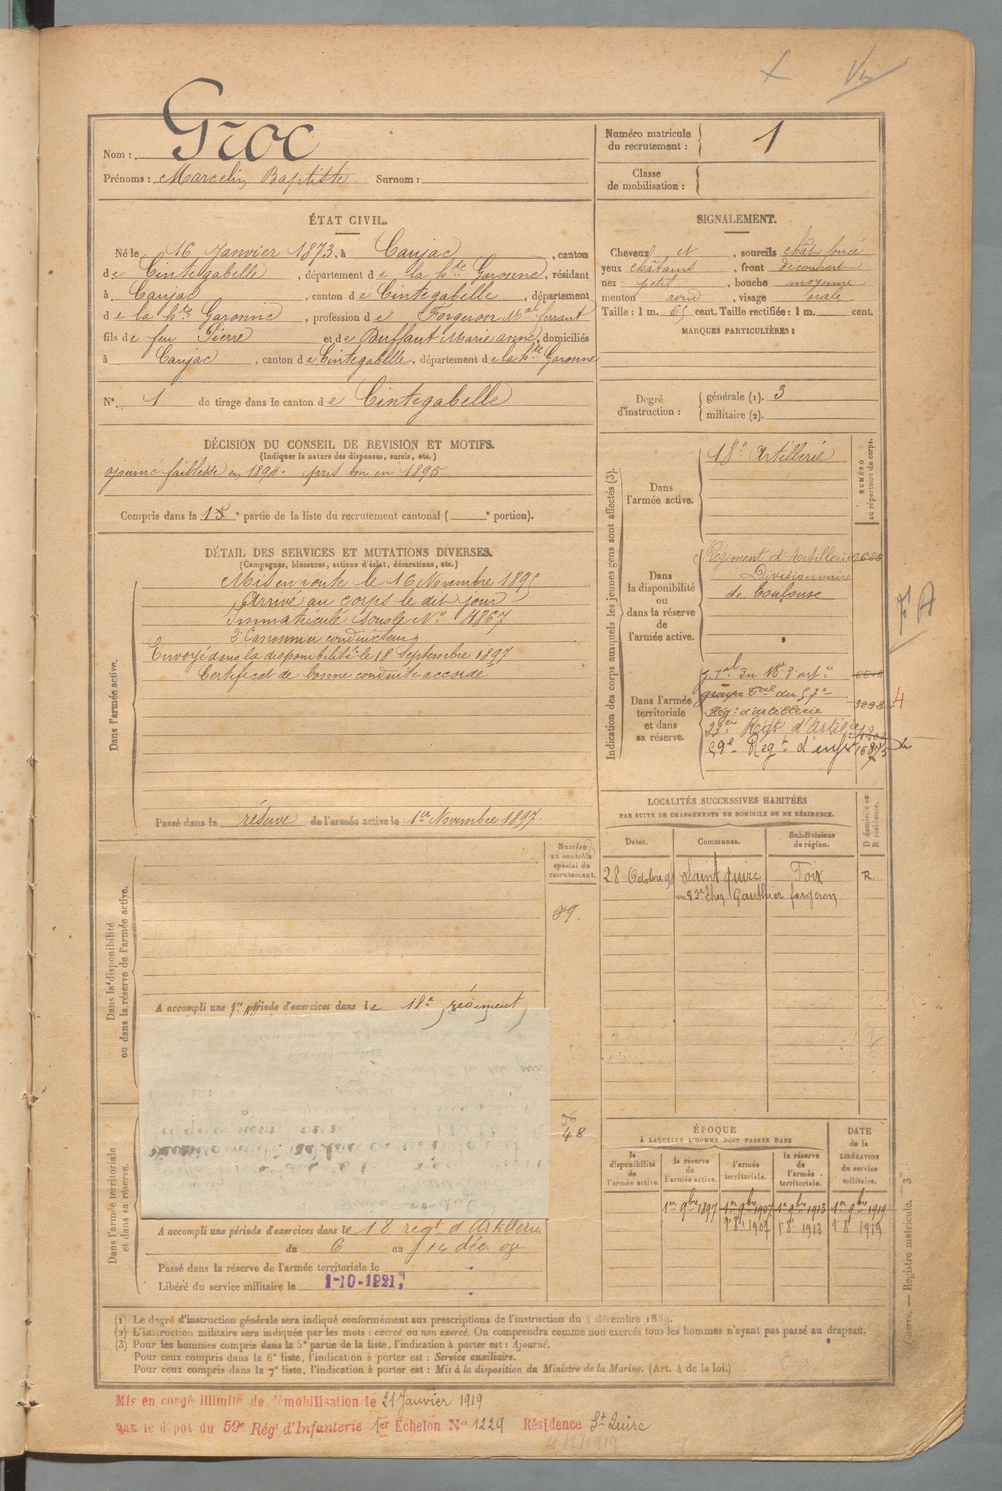 Groc
Nom :
Prénoms : Marcelin Baptiste Surnom :
Numéro matricule
du recrutement : 1
Classe
de mobilisation :
ÉTAT CIVIL.
Né le 16 Janvier 1873, à Caujac, canton
de Cintegabelle, département de la hte Garonne, résidant
à Caujac, canton de Cintegabelle, département
de la hte Garonne, profession de Forgeron Mal ferrant
fils de feu Pierre et de Buffaut Marie anne, domiciliés
à Caujac, canton de Cintegabelle, département de la hte Garonne
N° 1 de tirage dans le canton de Cintegabelle
SIGNALEMENT.
Cheveux et, sourcils chât foncé
yeux châtains, front découvert
nez petit, bouche moyenne
menton rond, visage ovale
Taille : 1 m. 65 cent. Taille rectifiée : 1 m. cent.
MARQUES PARTICULIÈRES :
Degré
d'instruction :
générale (1). 3
militaire (2).
DÉCISION DU CONSEIL DE REVISION ET MOTIFS.
(Indiquer la nature des dispenses, sursis, etc.)
ajourné faiblesse en 1894. pris bon en 1895
Compris dans la 1e partie de la liste du recrutement cantonal ( e portion).
DÉTAIL DES SERVICES ET MUTATIONS DIVERSES.
(Campagnes, blessures, actions d'éclat, décorations, etc.)
Dans l'armée active.
Mis en route le 16 Novembre 1895
Arrivé au corps le dit jour
Immatriculé sous le N° 4867
2e Canonnier conducteur
Envoyé dans la disponibilité le 18 Septembre 1897
Certificat de bonne conduite accordé
Passé dans la réserve de l'armée active le 1er Novembre 1897
Indication des corps auxquels les jeunes gens sont affectés (3).
NUMÉRO
au répertoire du corps.
Dans
l'armée active.
18e Artillerie
Dans
la disponibilité
ou
dans la réserve
de
l'armée active.
Régiment d'Artillerie
Divisionnaire
de Toulouse
Dans l'armée
territoriale
et dans
sa réserve.
groupe tal du 57e
Régt d'artillerie
3098
4
23e Régt d'Artie
59e Régt d'infie
LOCALITÉS SUCCESSIVES HABITÉES
PAR SUITE DE CHANGEMENTS DE DOMICILE OU DE RÉSIDENCE.
Dates. Communes. Subdivisions
de région. D domicile ou
R résidence.
28 Octobre 98 Saint quirc Foix R.
chez Gauthier forgeron
Numéro
au contrôle
spécial du
recrutement.
59.
48
Dans la disponibilité
ou dans la réserve de l'armée active.
A accompli une 1re période d'exercices dans le 18e régiment
Dans l'armée territoriale
et dans sa réserve.
A accompli une période d'exercices dans le 18 régt d'Artillerie
du 6 au 14 déc.
Passé dans la réserve de l'armée territoriale le
Libéré du service militaire le 1-10-1921
ÉPOQUE
À LAQUELLE L'HOMME DOIT PASSER DANS
la
disponibilité
de
l'armée active.
la réserve
de
l'armée active.
l'armée
territoriale.
la réserve
de
l'armée
territoriale.
DATE
de la
LIBÉRATION
du service
militaire.
1er 9bre 1897 1er 9bre 1907 1er 9bre 1913 1er 9bre 1919
1er 8e 1907 1er 8e 1913 1er 8e 1919
— Registre matricule. 3
(1) Le degré d'instruction générale sera indiqué conformément aux prescriptions de l'instruction du 4 décembre 1889.
(2) L'instruction militaire sera indiquée par les mots : exercé ou non exercé. On comprendra comme non exercés tous les hommes n'ayant pas passé au drapeau.
(3) Pour les hommes compris dans la 5e partie de la liste, l'indication à porter est : Ajourné.
Pour ceux compris dans la 6e liste, l'indication à porter est : Service auxiliaire.
Pour ceux compris dans la 7e liste, l'indication à porter est : Mis à la disposition du Ministre de la Marine. (Art. 4 de la loi.)
Mis en congé illimité de démobilisation le 21 Janvier 1919
par le dépôt du 59e Régt d'Infanterie 1er Echelon N° 1229 Résidence St Quirc